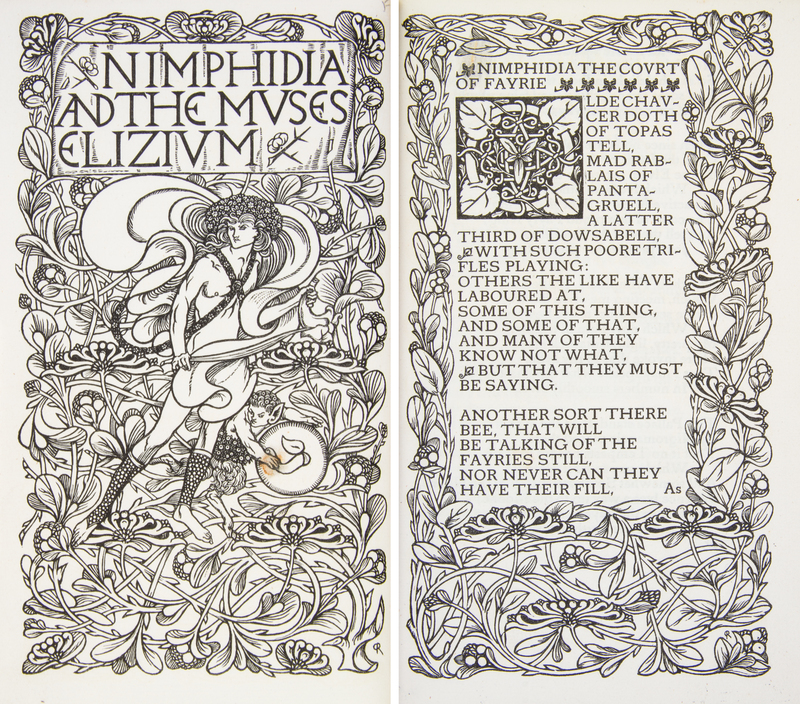 NIMPHIDIA
AND THE MVSES
ELIZIVM
R
NIMPHIDIA THE COVRT
OF FAYRIE
OLDE CHAV-
CER DOTH
OF TOPAS
TELL,
MAD RAB-
LAIS OF
PANTA-
GRUELL,
A LATTER
THIRD OF DOWSABELL,
WITH SUCH POORE TRI-
FLES PLAYING:
OTHERS THE LIKE HAVE
LABOURED AT,
SOME OF THIS THING,
AND SOME OF THAT,
AND MANY OF THEY
KNOW NOT WHAT,
BUT THAT THEY MUST
BE SAYING.
ANOTHER SORT THERE
BEE, THAT WILL
BE TALKING OF THE
FAYRIES STILL,
NOR NEVER CAN THEY
HAVE THEIR FILL, As
R